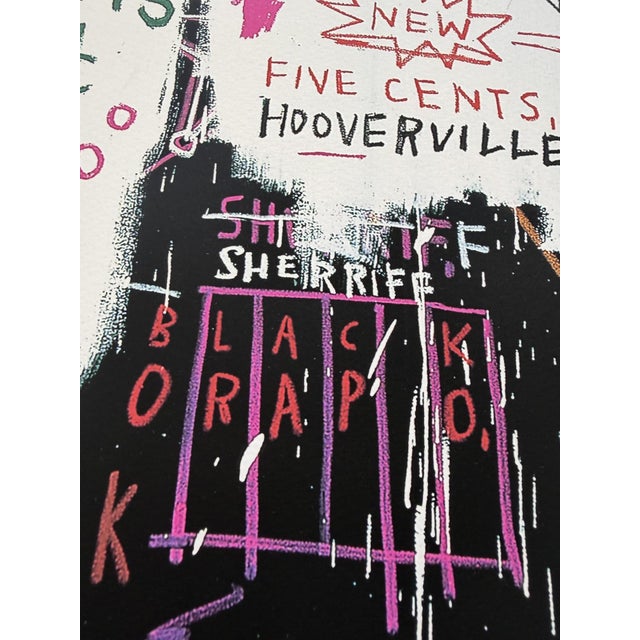 NEW
FIVE CENTS,
HOOVERVILLE
SHERRIFF
BLACK
ORAPO,
K